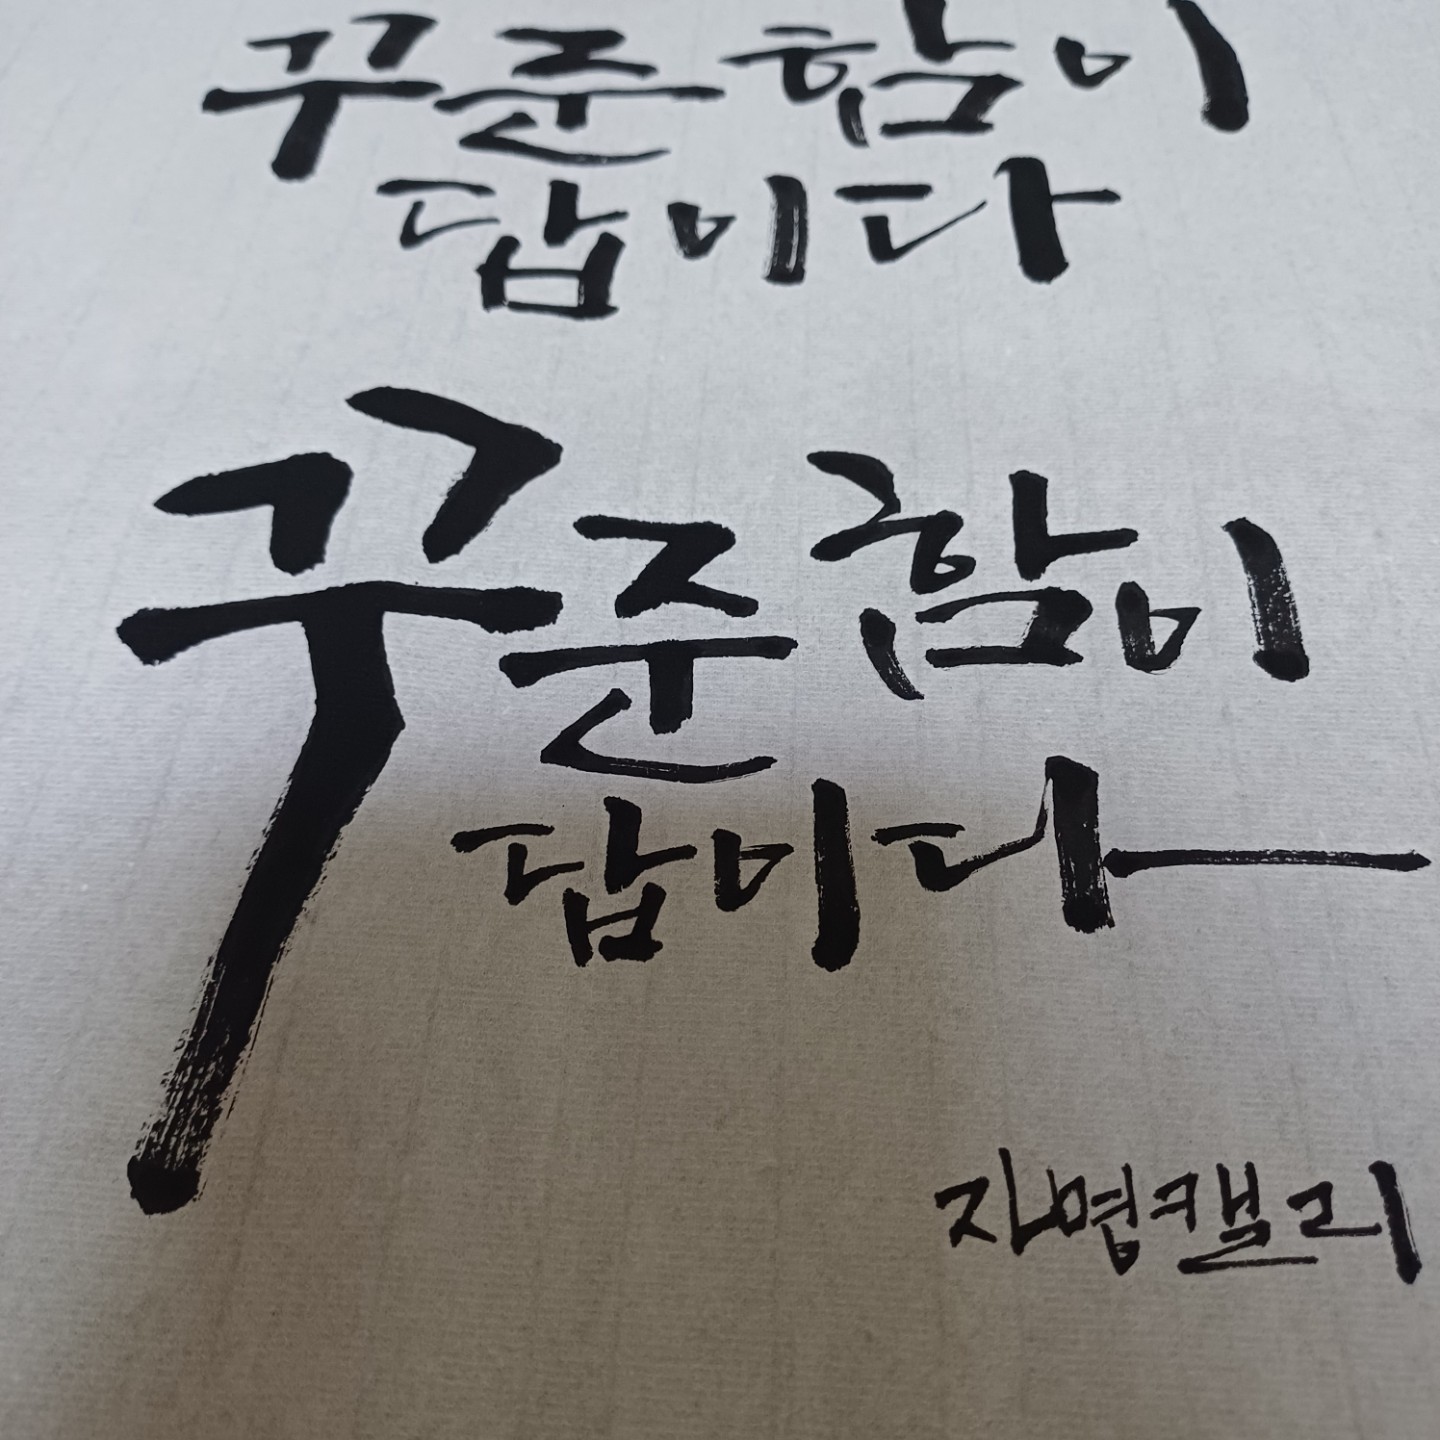 꾸준함이
답이다
꾸준함이
답이다
자영캘리